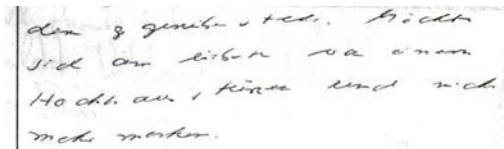 dem g genüber steh. Möchte
sich am liebsten von einem
Hochhaus stürzen und nichts
mehr merken.